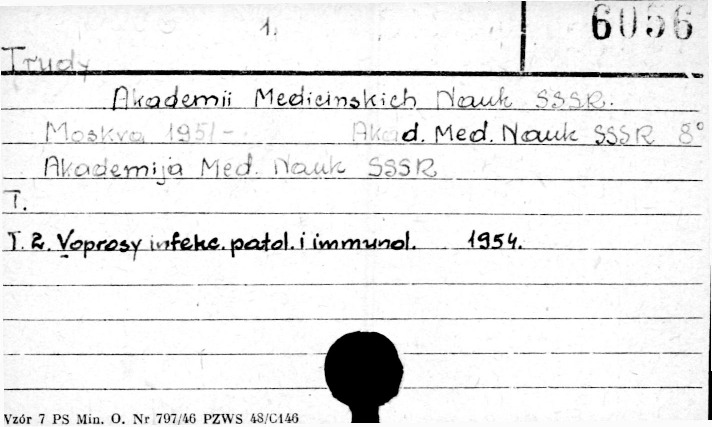 1.
6056
Trudy
Akademii Medicinskich Nauk SSSR.
Moskva 1951- Akad. Med. Nauk SSSR 8°
Akademija Med. Nauk SSSR
T.
T. 2. Voprosy infekc. patol. i immunol. 1954.
Vzór 7 PS Min. O. Nr 797/46 PZWS 48/C146